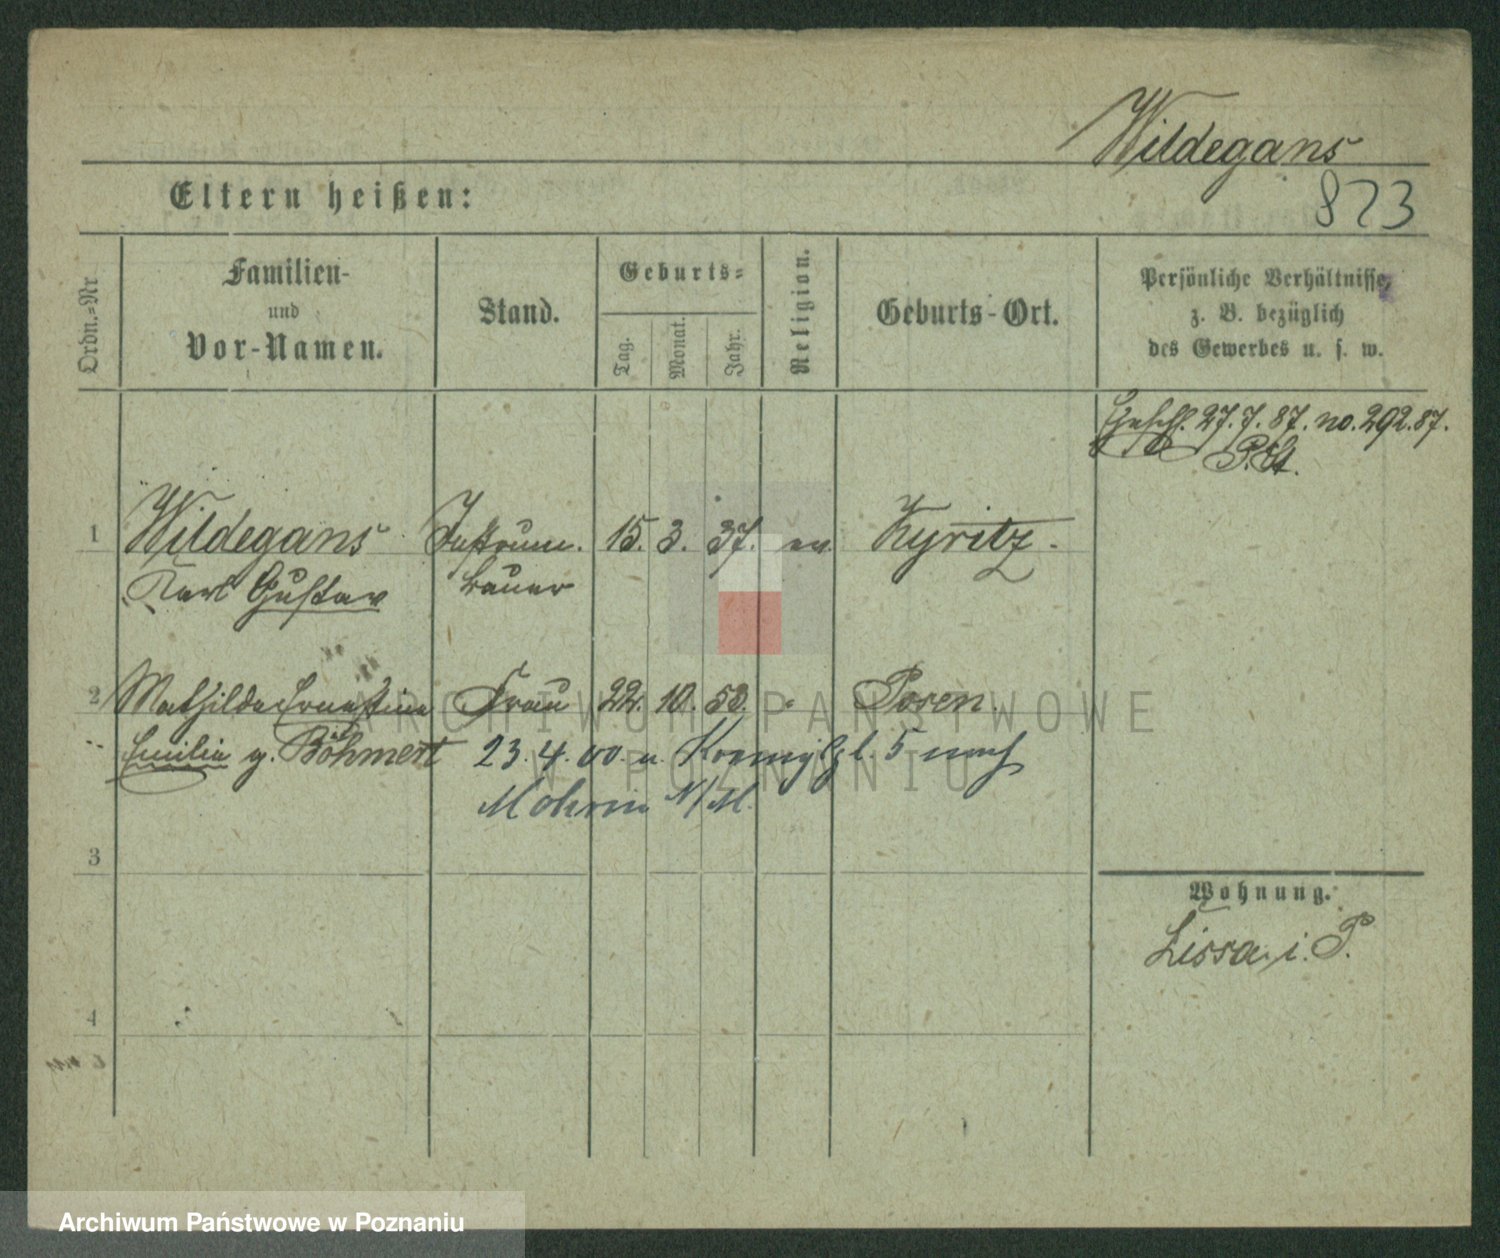 Wildegans
823
Eltern heißen:
Ordn.-Nr
Familien-
und
Vor-Namen.
Stand.
Geburts-
Tag.
Monat.
Jahr.
Religion.
Geburts-Ort.
Persönliche Verhältnisse,
z. B. bezüglich
des Gewerbes u. s. w.
27.7.87. no. 292.87.
P. St.
1 Wildegans Instrum. 15. 3. 37. ev. Kyritz.
Karl Gustav bauer
2 Mathilde Ernestine Frau 22. 10. 50. " Posen.
Emilie g. Böhmert 23. 4. 00. u. 5 nach
Mohrin N/M.
3
Wohnung.
Lissa i. P.
4
ARCHIWUM PAŃSTWOWE
W POZNANIU
Archiwum Państwowe w Poznaniu